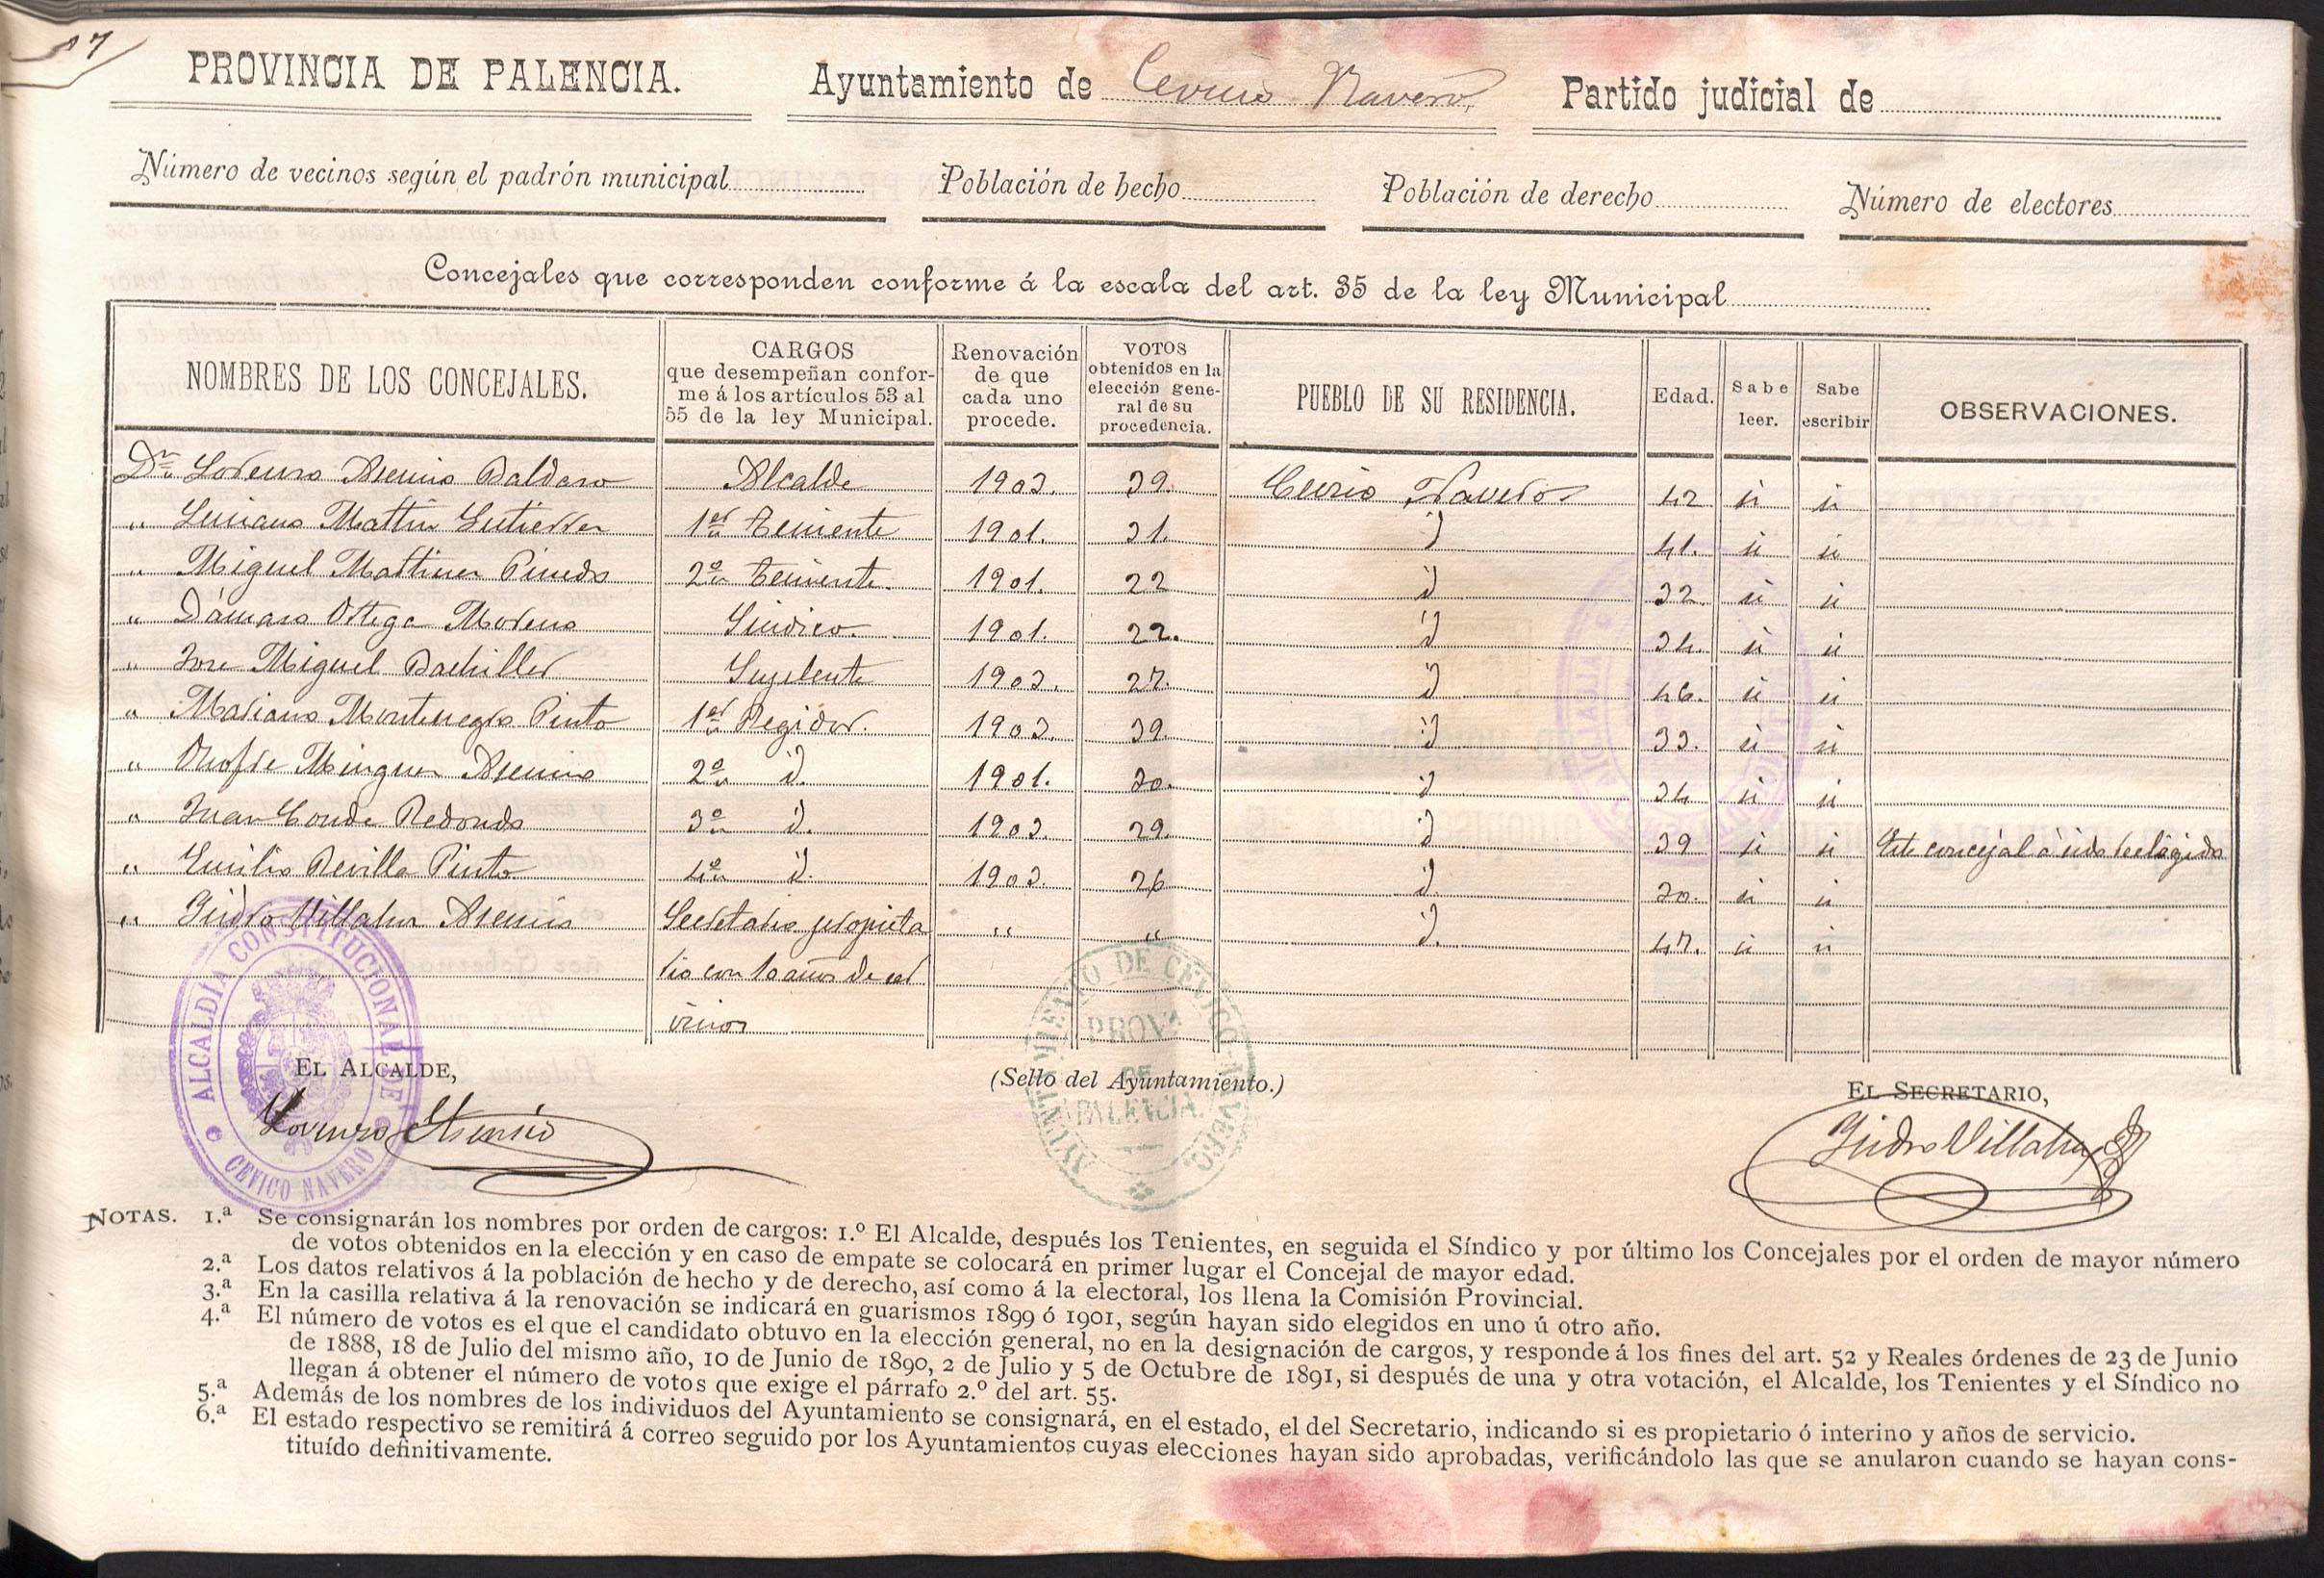 87
PROVINCIA DE PALENCIA. Ayuntamiento de Cevico Navero, Partido judicial de
Número de vecinos según el padrón municipal Población de hecho Población de derecho Número de electores
Concejales que corresponden conforme á la escala del art. 35 de la ley Municipal
NOMBRES DE LOS CONCEJALES. CARGOS que desempeñan conforme á los artículos 53 al 55 de la ley Municipal. Renovación de que cada uno procede. VOTOS obtenidos en la elección general de su procedencia. PUEBLO DE SU RESIDENCIA. Edad. Sabe leer. Sabe escribir OBSERVACIONES.
Dn Lorenzo Asenio Baldaro Alcalde 1903. 39. Cevico Navero 42 si si
" Luciano Martin Gutierrez 1er Teniente 1901. 31. id 41. si si
" Miguel Martinez Pinedo 2o Teniente. 1901. 22 id 32. si si
" Dámaso Ortega Moreno Sindico. 1901. 22. id 34. si si
" Jose Miguel Bachiller Suplente 1903. 27. id 46. si si
" Mariano Montenegro Pinto 1er Regidor. 1903. 39. id 33. si si
" Onofre Minguez Asenio 2o id. 1901. 30. id 34 si si
" Juan Conde Redondo 3o id. 1903. 29. id 39 si si Este concejal á sido reelegido
" Emilio Revilla Pinto 4o id. 1903. 26 id 30. si si
" Isidro Villahn Asenio Secretario propieta " " id. 47. si si
rio con 10 años de ser
vicios
ALCALDÍA CONSTITUCIONAL DE CEVICO NAVERO
AYUNTAMIENTO DE CEVICO NAVERO. PROVA. DE PALENCIA.
EL ALCALDE, (Sello del Ayuntamiento.) EL SECRETARIO,
Lorenzo Asensio Isidro Villahn
NOTAS. 1.ª Se consignarán los nombres por orden de cargos: 1.º El Alcalde, después los Tenientes, en seguida el Síndico y por último los Concejales por el orden de mayor número
de votos obtenidos en la elección y en caso de empate se colocará en primer lugar el Concejal de mayor edad.
2.ª Los datos relativos á la población de hecho y de derecho, así como á la electoral, los llena la Comisión Provincial.
3.ª En la casilla relativa á la renovación se indicará en guarismos 1899 ó 1901, según hayan sido elegidos en uno ú otro año.
4.ª El número de votos es el que el candidato obtuvo en la elección general, no en la designación de cargos, y responde á los fines del art. 52 y Reales órdenes de 23 de Junio
de 1888, 18 de Julio del mismo año, 10 de Junio de 1890, 2 de Julio y 5 de Octubre de 1891, si después de una y otra votación, el Alcalde, los Tenientes y el Síndico no
llegan á obtener el número de votos que exige el párrafo 2.º del art. 55.
5.ª Además de los nombres de los individuos del Ayuntamiento se consignará, en el estado, el del Secretario, indicando si es propietario ó interino y años de servicio.
6.ª El estado respectivo se remitirá á correo seguido por los Ayuntamientos cuyas elecciones hayan sido aprobadas, verificándolo las que se anularon cuando se hayan cons-
tituído definitivamente.